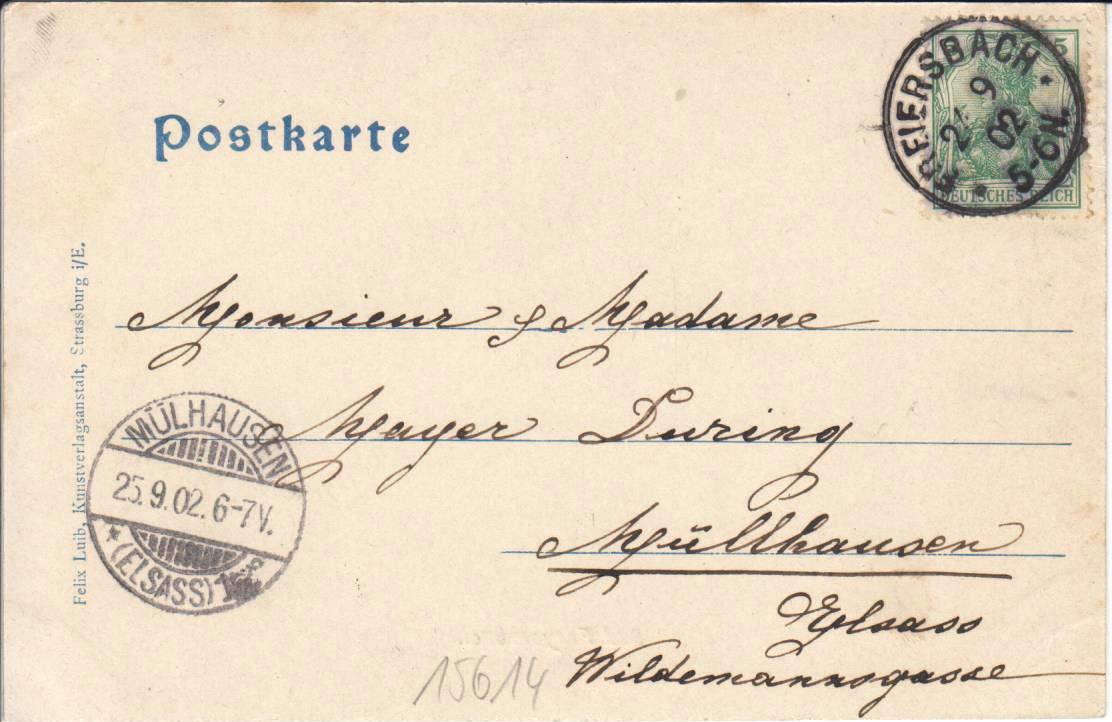 Postkarte
FREIERSBACH
24 9
02
5-6N.
5
DEUTSCHES REICH
Felix Luib, Kunstverlagsanstalt, Strassburg i/E.
Monsieur & Madame
Mayer During
Müllhausen
Elsass
Wildemannsgasse
MÜLHAUSEN
25.9.02.6-7V.
* (ELSASS)
15614